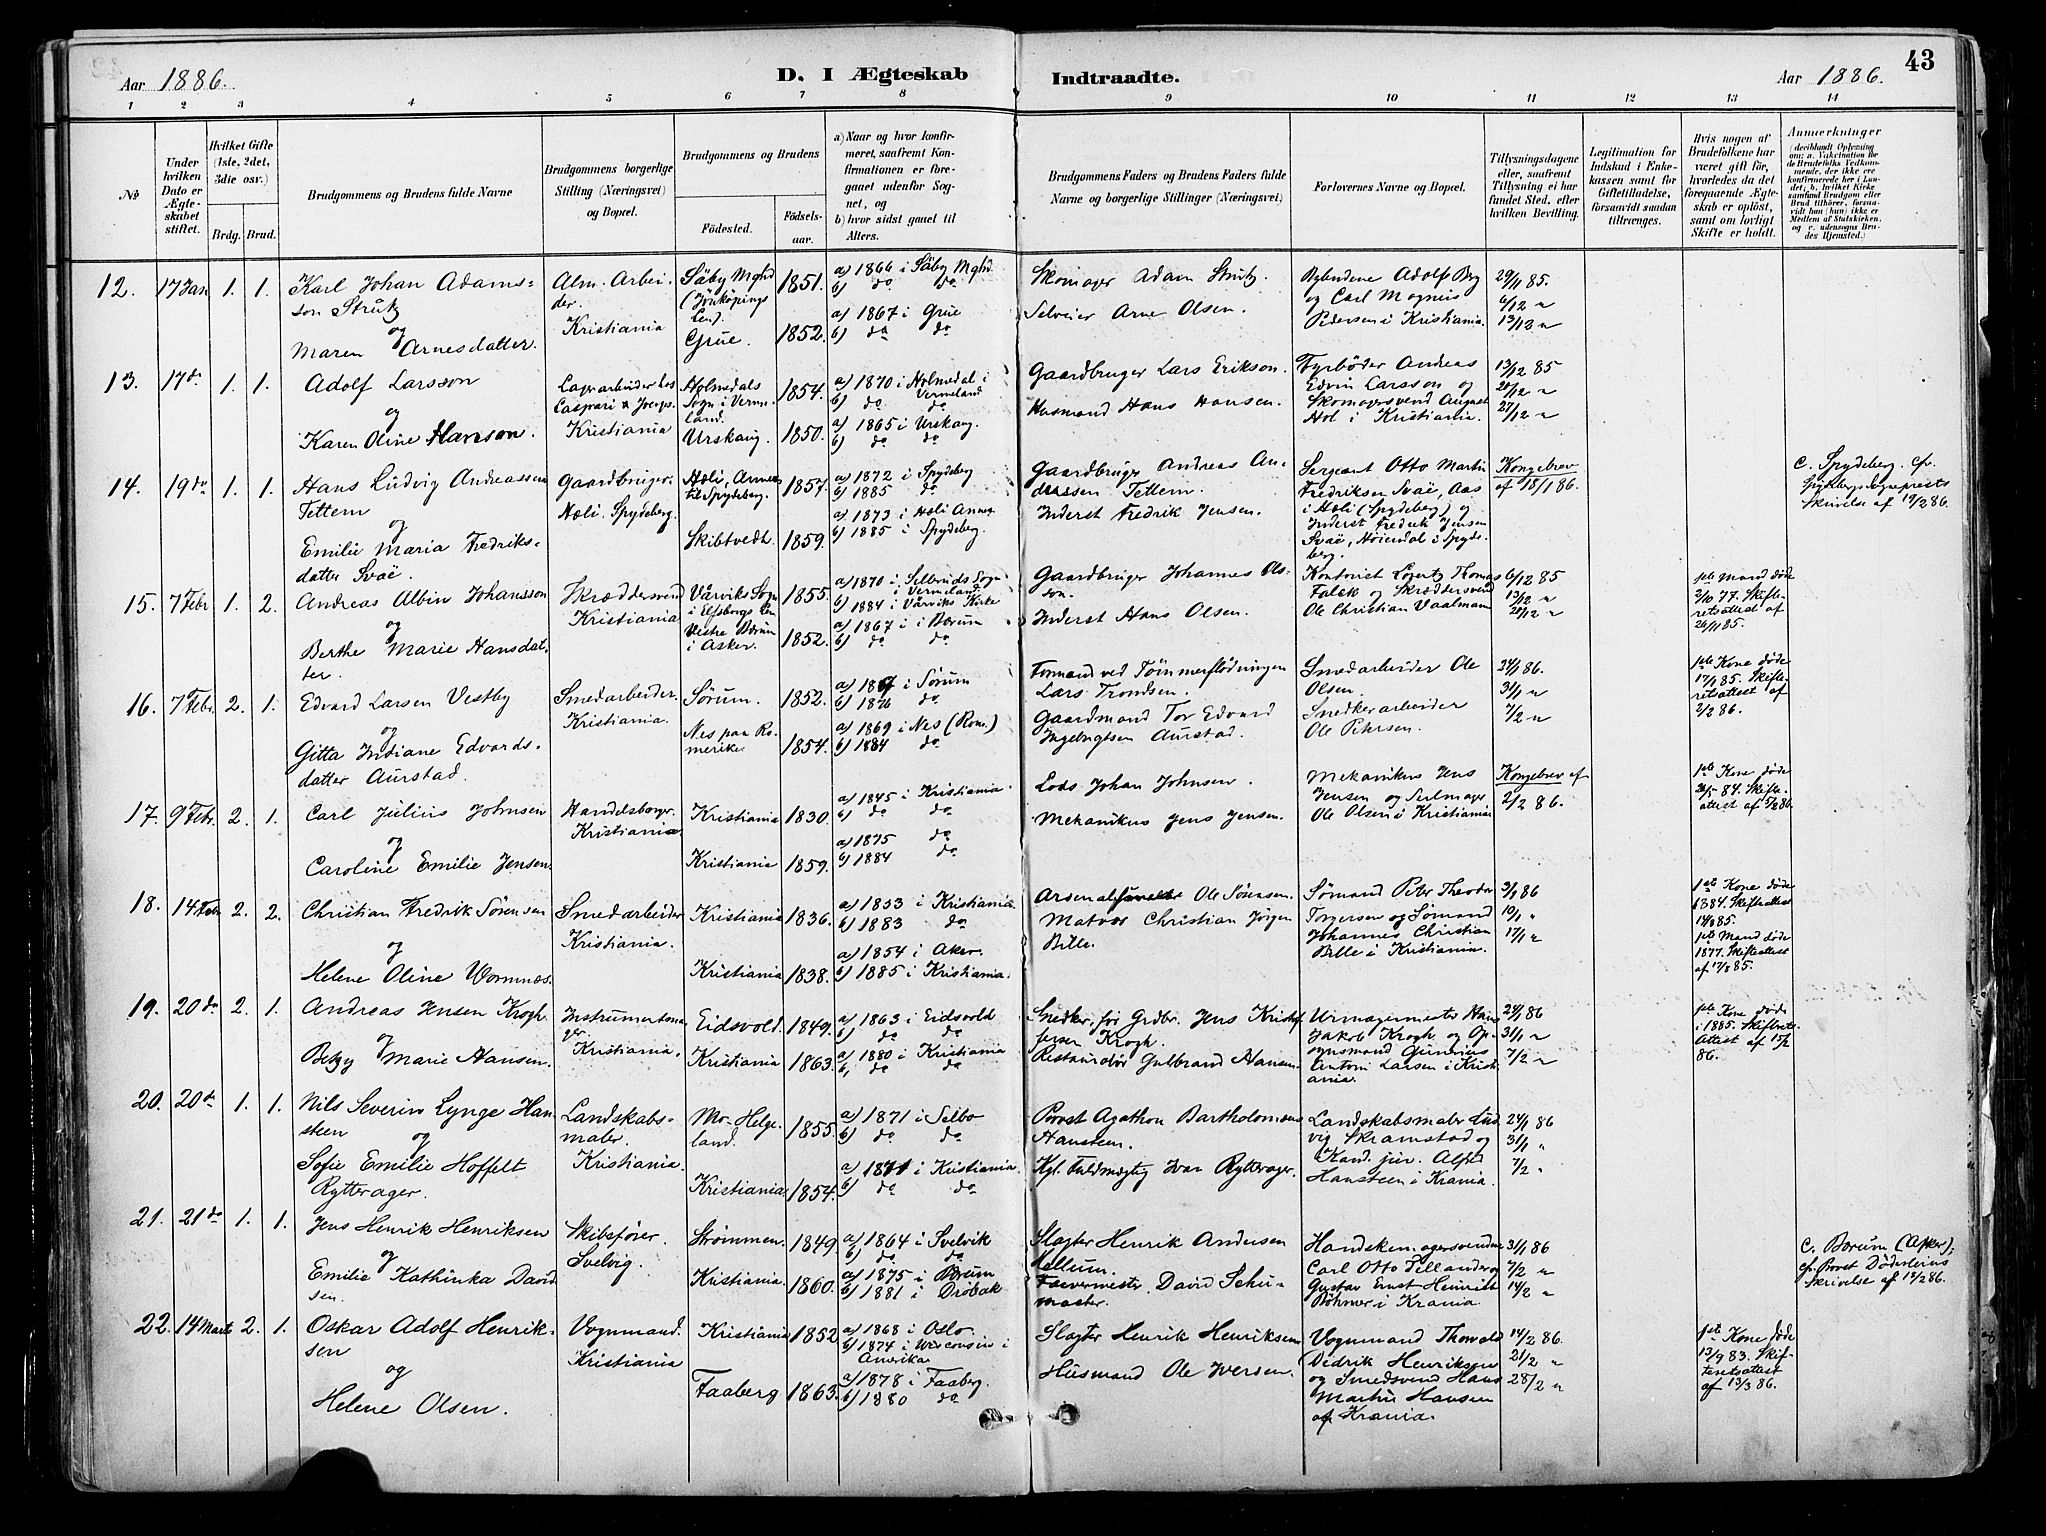 43
Aar 1886.
D. I Ægteskab
Indtraadte.
Aar 1886.
1 2 3 4 5 6 7 8 9 10 11 12 13 14
No
Under hvilken Dato er Ægteskabet stiftet.
Hvilket Gifte (1ste, 2det, 3die osv.)
Brdg. Brud.
Brudgommens og Brudens fulde Navne
Brudgommens borgerlige Stilling (Næringsvei) og Bopæl.
Brudgommens og Brudens
Fødested.
Fødselsaar.
a) Naar og hvor konfirmeret, saafremt Konfirmationen er foregaaet udenfor Sognet, og
b) hvor sidst gaaet til Alters.
Brudgommens Faders og Brudens Faders fulde Navne og borgerlige Stillinger (Næringsvei)
Forlovernes Navne og Bopæl.
Tillysningsdagene eller, saafremt Tillysning ei har fundet Sted, efter hvilken Bevilling.
Legitimation for Indskud i Enkekassen samt for Giftetilladelse, forsaavidt saadan tiltrænges.
Hvis nogen af Brudefolkene har været gift før, hvorledes da det foregaaende Ægteskab er opløst, samt om lovligt Skifte er holdt.
Anmærkninger (deriblandt Oplysning om: a. Vakcination for de Brudefolks Vedkommende, der ikke ere konfirmerede her i Landet; b. hvilket Kirkesamfund Brudgom eller Brud tilhører, forsaavidt han (hun) ikke er Medlem af Statskirken, og c. udensogns Brudes Hjemsted.)
12. 17 Jan 1. 1.
Karl Johan Adams-
son Strutz
og
Maren Arnesdatter.
Alm. Arbei-
der.
Kristiania
Säby Mghd
(Jönköpings
Len).
Grue.
1851.
1852.
a) 1866 i Säby Mghd
b) do do
a) 1867 i Grue
b) do do
Skomager Adam Strutz.
Selveier Arne Olsen.
Bybudene Adolf Berg
og Carl Magnus
Pedersen i Kristiania.
29/11 85.
6/12 "
13/12 "
13. 17 do 1. 1.
Adolf Larsson
og
Karen Oline Hanson.
Lagerarbeider hos
Caspari &
Kristiania
Holmedals
Sogn i Verme-
land.
Urskaug.
1854.
1850.
a) 1870 i Holmedal i
Vermeland
b) do do
a) 1865 i Urskaug.
b) do do
Gaardbruger Lars Erikson.
Husmand Hans Hansen.
Fyrbøder Andreas
Edvin Larsson og
Skomagersvend August
Hol i Kristiania.
13/12 85
20/12 "
27/12 "
14. 19 do 1. 1.
Hans Ludvig Andreassen
Tettem
og
Emilie Maria Fredriks-
datter Svaë.
Gaardbruger.
Hæli. Spydeberg.
Hæli, Annex
til Spydeberg.
Skibtvedt.
1857.
1859.
a) 1872 i Spydeberg
b) 1885 do
a) 1873 i Hæli Annex
b) 1885 i Spydeberg.
Gaardbruger Andreas An-
dreassen Tettem.
Inderst Fredrik Jensen.
Sergeant Otto Martin
Fredriksen Svaë, Aas
i Hæli (Spydeberg) og
Inderst Fredrik Jensen
Svaë, Høiendal i Spyde-
berg.
Kongebrev
af 18/1 86.
c. Spydeberg. cfr.
Spydebergs Sogneprests
Skrivelse af 19/2 86.
15. 7 Febr 1. 2.
Andreas Albin Johansson
og
Berthe Marie Hansdat-
ter.
Skræddersvend
Kristiania
Vårviks Sogn
i Elfsborgs Len
Vestre Bærum
i Asker.
1855.
1852.
a) 1870 i Sogn
i Vermeland.
b) 1884 i Vårviks Kirke
a) 1867 i Bærum
b) do do
Gaardbruger Johannes Ols-
son.
Inderst Hans Olsen.
Kontorist Lorentz Thomas
Falck og Skræddersvend
Ole Christian Vaalmann
6/12 85
13/12 "
20/12 "
1ste Mand døde
2/10 77. Skifte-
retsattest af
26/11 85.
16. 7 Febr. 2. 1.
Edvard Larsen Vestby
og
Gitta Indiane Edvards-
datter Aurstad.
Smedarbeider.
Kristiania.
Sørum.
Nes paa Ro-
merike
1852.
1854.
a) 1867 i Sørum
b) 1876 do
a) 1869 i Nes (Rom.)
b) 1884 do
Formand ved Tømmerflødningen
Lars Trondsen.
Gaardmand Tor Edvard
Ingebrigtsen Aurstad.
Smedarbeider Ole
Olsen.
Snedkerarbeider
Ole Petersen.
24/1 86.
31/1 "
7/2 "
1ste Kone døde
17/1 85. Skifte-
retsattest af
2/2 86.
17. 9 Febr. 2. 1.
Carl Julius Johnsen
og
Caroline Emilie Jensen.
Handelsborger.
Kristiania
Kristiania
Kristiania
1830.
1859.
a) 1845 i Kristiania.
b) do do
a) 1875 do
b) 1884 do
Lods Johan Johnsen.
Mekanikus Jens Jensen.
Mekanikus Jens
Jensen og Seilmager
Ole Olsen i Kristiania
Kongebrev af
2/2 86.
1ste Kone døde
26/5 84. Skifte-
attest af 5/2 86.
18. 14 Febr. 2. 2.
Christian Fredrik Sörensen
og
Helene Oline Wormnæs.
Smedarbeider
Kristiania.
Kristiania
Kristiania
1836.
1838.
a) 1853 i Kristiania.
b) 1883 do
a) 1854 i Aker.
b) 1885 i Kristiania.
Ole Sörensen.
Matros Christian Jörgen
Bille.
Sømand Peter Theodor
Torgersen og Sømand
Johannes Christian
Bille i Kristiania.
3/1 86
10/1 "
17/1 "
1ste Kone døde
1884. Skifteattest
14/8 85.
1ste Mand døde
1877. Skifteattest
af 17/8 85.
19. 20 do 2. 1.
Andreas Jensen Krogh
og
Betzy Marie Hansen.
Instrumentma-
ger
Kristiania.
Eidsvold.
Kristiania
1849.
1863.
a) 1863 i Eidsvold
b) do do
a) 1880 i Kristiania
b) do do
Snedker, før Grdbr. Jens Kristof-
fersen Krogh.
Restauratør Gulbrand Hansen.
Urmagermester Hans
Jakob Krogh og Op-
synsmand Gunerius
Antoni Larsen i Krist-
iania.
24/1 86
31/1 "
7/2 "
1ste Kone døde
i 1885. Skifterets-
attest af 15/2
86.
20. 20 do 1. 1.
Nils Severin Lynge Han-
steen
og
Sofie Emilie Hoffelt
Rytterager.
Landskabs-
maler.
Kristiania.
Mo-Helge-
land.
Kristiania
1855.
1854.
a) 1871 i Selbo
b) do do
a) 1871 i Kristiania.
b) do do
Provst Agathon Bartholomæus
Hansteen.
Kgl. Fuldmægtig Ivar Rytterager.
Landskabsmaler Lud-
vig Skramstad og
Kand. jur. Alfred
Hansteen i Krania.
24/1 86
31/1 "
7/2 "
21. 21 do 1. 1.
Jens Henrik Henriksen
og
Emilie Kathinka David-
sen.
Skibsfører.
Svelvig.
Strømmen.
Kristiania.
1849.
1860.
a) 1864 i Svelvik
b) do do
a) 1875 i Bærum
b) 1881 i Drøbak
Slagter Henrik Andersen
Hellum.
Farvermester David Schu-
macher.
Handskemagersvendene
Carl Otto Tillander og
Gustav Ernst Heinrich
Böhmer i Krania.
31/1 86
7/2 "
14/2 "
c. Bærum (Asker);
cfr. Provst Döderleins
Skrivelse af 12/2 86.
22. 14 Marts 2. 1.
Oskar Adolf Henrik-
sen
og
Helene Olsen.
Vognmand.
Kristiania
Kristiania
Faaberg
1852
1863.
a) 1868 i Oslo.
b) 1874 i Wisconsin i
Amerika
a) 1878 i Faaberg.
b) 1880 do
Slagter Henrik Henriksen
Husmand Ole Iversen.
Vognmand Thorvald
Didrik Henriksen
og Smedsvend Hans
Martin Hansen
af Krania.
14/2 86.
21/2 "
28/2 "
1ste Kone døde
13/9 83. Skif-
teretsattest
af 13/3 86.